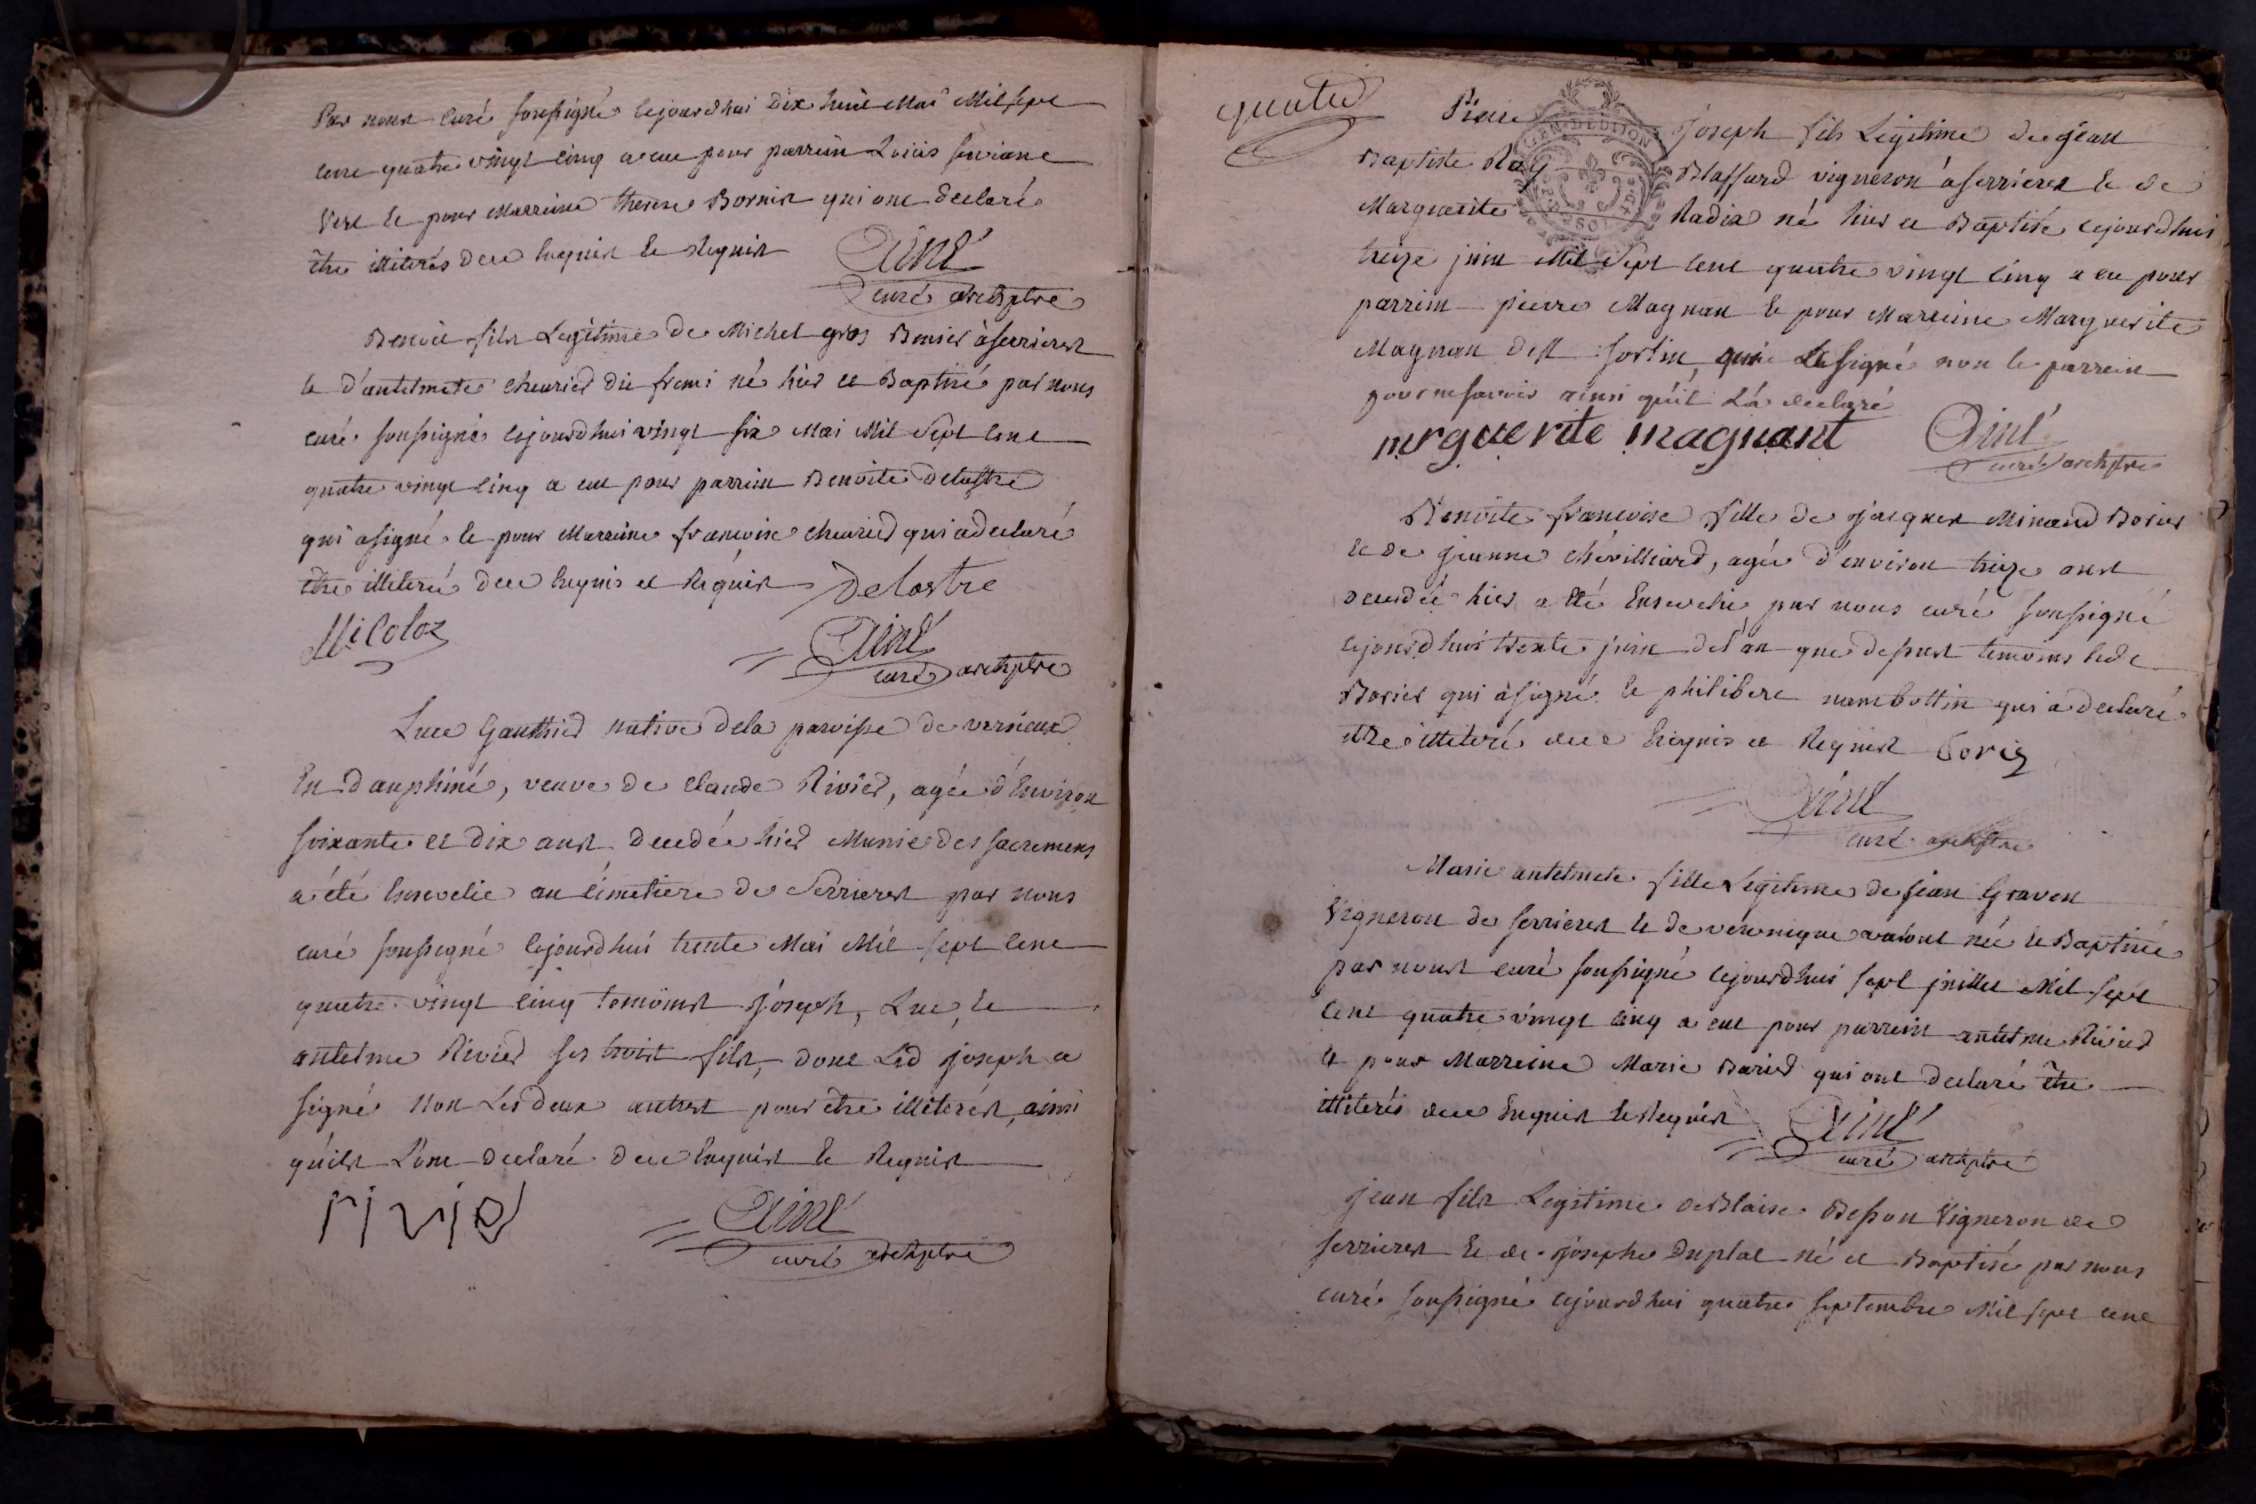 Par nous curé soussigné cejourdhui dix huit Mai Mil sept
cent quatre vingt cinq a eu pour parrein Louis
et pour Marreine therese Bornier qui ont declaré
être illiterés de ce Enquis et Requis
Aimé
curé archiptre
Benoit fils Legitime de Michel gros Benier à serrieres
et d'antelmete cheurier né hier et Baptisé par nous
curé soussigné cejourdhui vingt six Mai Mil Sept Cent
quatre vingt cinq a eu pour parrein Benoite Delastre
qui a signé et pour Marreine francoise cheurier qui a declaré
être illiteré de ce Enquis et Requis Delastre
Micoloz
Aimé
curé archiptre
Luce Gauthier native de la paroisse de versieux
En Dauphiné, veuve de Claude Rivier, agée d'Environ
soixante et dix ans Decedée hier Munie des sacremens
a été Ensevelie au cimetiere de Serrieres par nous
curé soussigné cejourdhui trente Mai Mil sept Cent
quatre vingt cinq temoins Joseph, Luc, et
antelme Rivier ses trois fils, dont Led joseph a
signé Non Les deux autres pour être illiterés, ainsi
qu'ils L'ont declaré de ce Enquis et Requis
rivier
Aimé
curé archiptre
quatre
Pierre Joseph fils Legitime de jean
Baptiste Rey Blaffard vigneron à serrieres et de
Marguerite Radix né hier et Baptisé cejourdhui
treize juin Mil Sept Cent quatre vingt cinq a eu pour
GEN. DE DIJON
parrein pierre Magnan et pour Marreine Marguerite
Magnan qui a signé non le parrein
pour ne savoir ainsi qu'il L'a declaré
mrguerite magnant
Aimé
curé archiptre
Benoite francoise fille de Jacques Minand Borier
et de jeanne chevilliard, agée d'environ treize ans
decedée hier a été Ensevelie par nous curé soussigné
cejourdhui trente juin de l'an que dessus temoins
Borier qui a signé et philibert nambottin qui a declaré
être illiteré de ce Enquis et Requis
Aimé
curé archiptre
Marie antelmete fille Legitime de jean Graven
Vigneron de serrieres et de veronique née et Baptisée
par nous curé soussigné cejourdhui sept juillet Mil sept
Cent quatre vingt cinq a eu pour parrein antelme Rivier
et pour Marreine Marie qui ont declaré être
illiterés de ce Enquis et Requis
Aimé
curé archiptre
jean fils Legitime de Blaise Besson Vigneron de
serrieres et de josephe Duplat né et Baptisé par nous
curé soussigné cejourdhui quatre septembre Mil sept cent